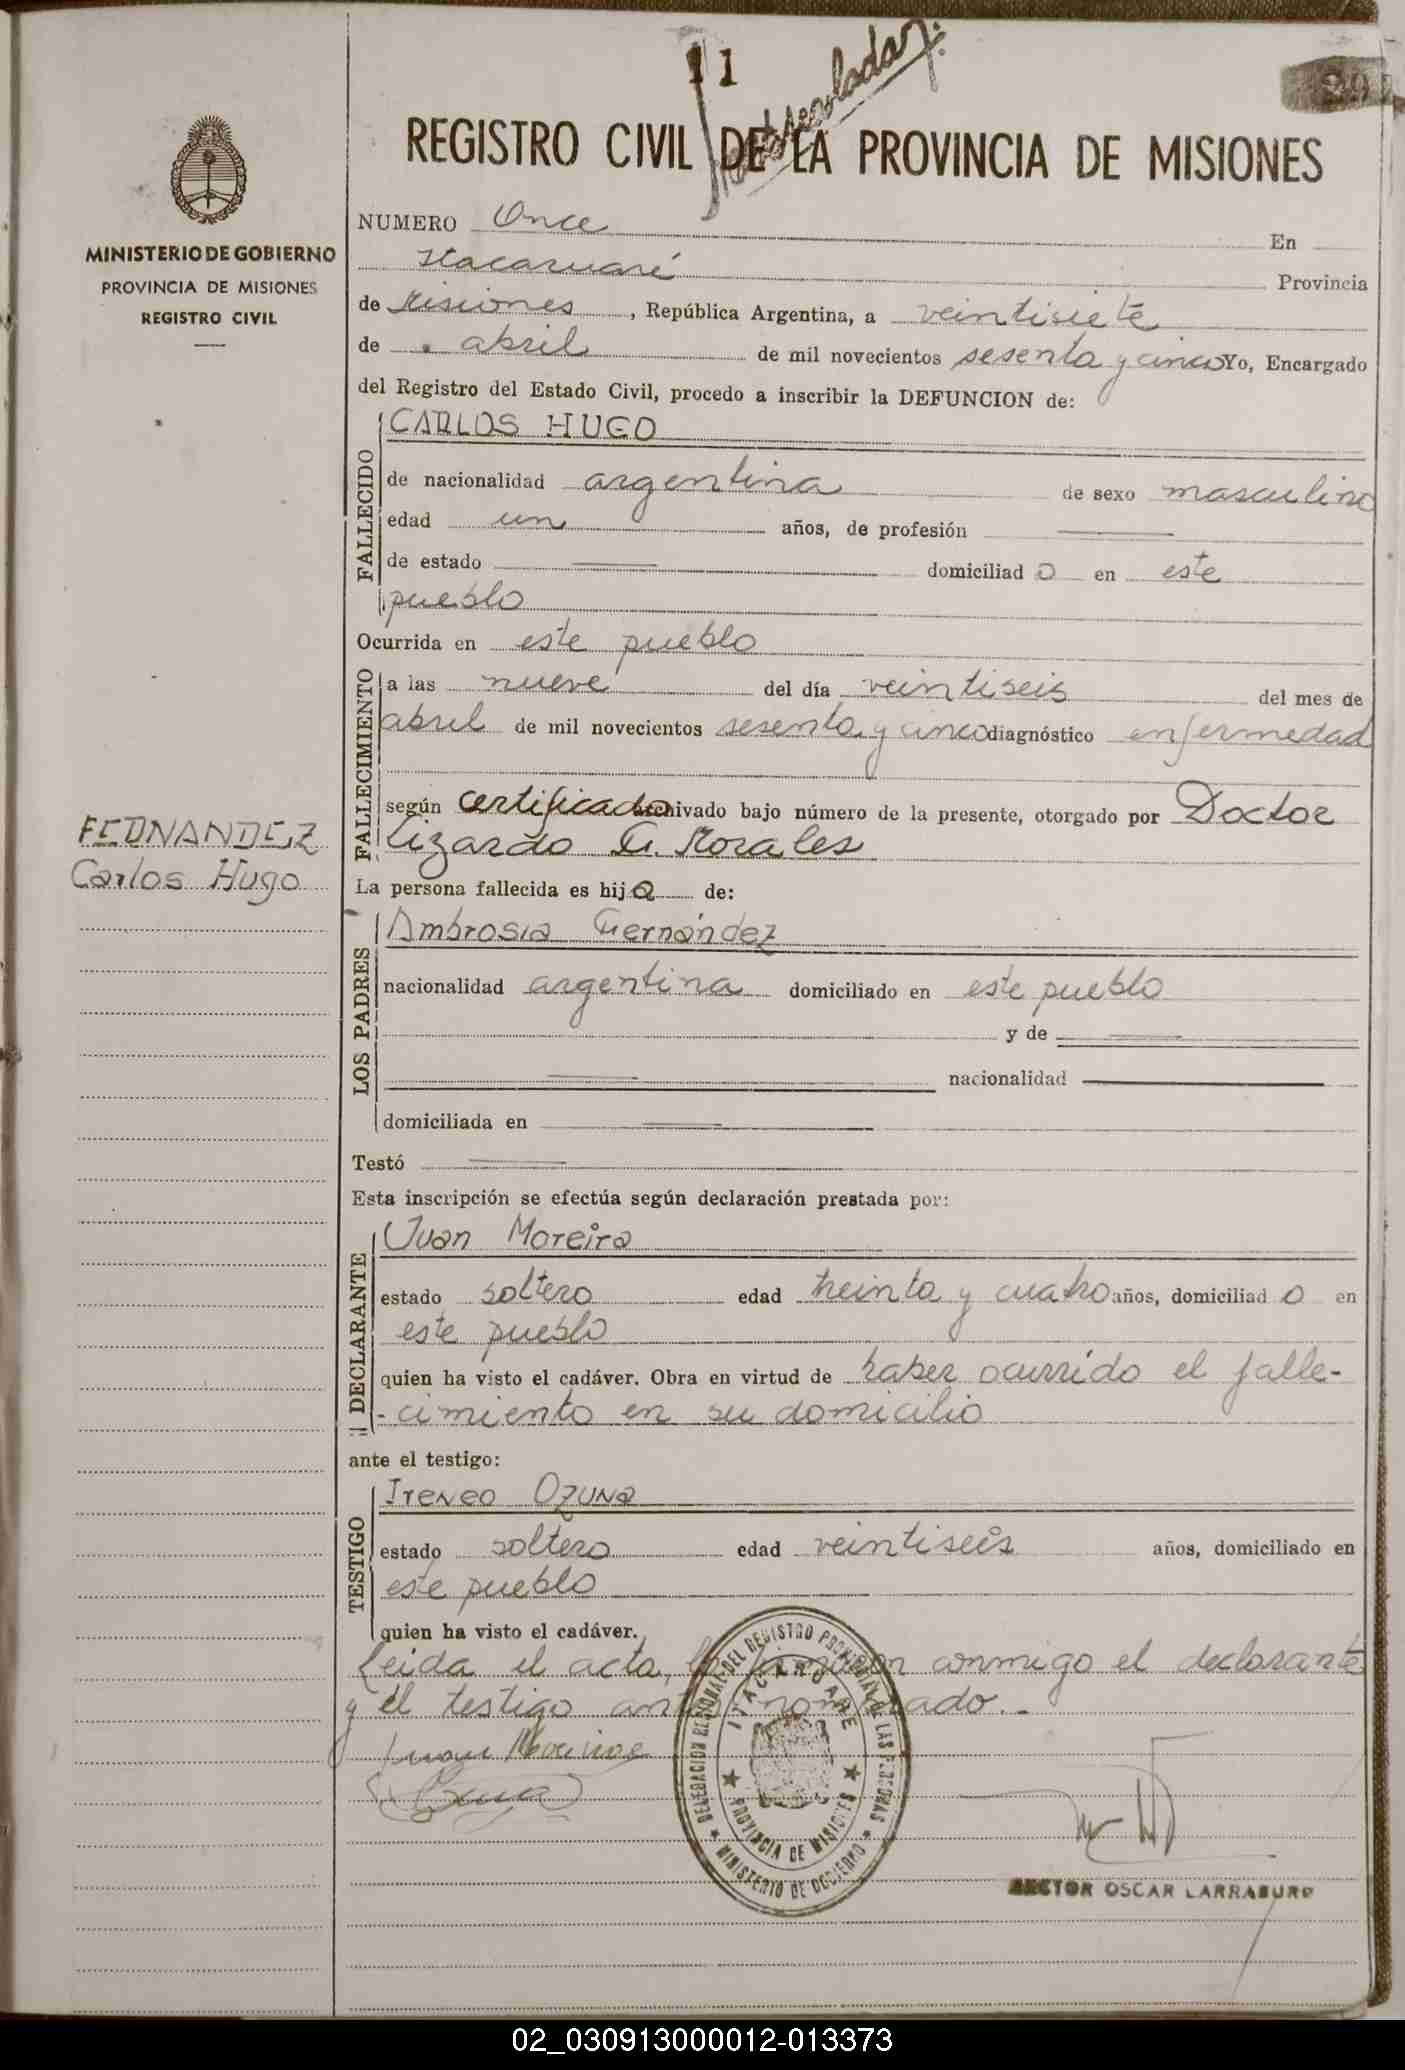 11
REGISTRO CIVIL DE LA PROVINCIA DE MISIONES
MINISTERIO DE GOBIERNO
PROVINCIA DE MISIONES
REGISTRO CIVIL
NUMERO Once En
Itacaruaré Provincia
de Misiones, República Argentina, a veintisiete
de abril de mil novecientos sesenta y cinco Yo, Encargado
del Registro del Estado Civil, procedo a inscribir la DEFUNCION de:
FALLECIDO
CARLOS HUGO
de nacionalidad argentina de sexo masculino
edad un años, de profesión
de estado domiciliad o en este
pueblo
Ocurrida en este pueblo
FALLECIMIENTO
a las nueve del día veintiseis del mes de
abril de mil novecientos sesenta y cinco diagnóstico enfermedad
según certificado archivado bajo número de la presente, otorgado por Doctor
Lizardo G. Morales
FERNANDEZ
Carlos Hugo
La persona fallecida es hij o de:
LOS PADRES
Ambrosia Fernández
nacionalidad argentina domiciliado en este pueblo
y de
nacionalidad
domiciliada en
Testó
Esta inscripción se efectúa según declaración prestada por:
DECLARANTE
Juan Moreira
estado soltero edad treinta y cuatro años, domiciliad o en
este pueblo
quien ha visto el cadáver. Obra en virtud de haber ocurrido el falle-
-cimiento en su domicilio
ante el testigo:
TESTIGO
Ireneo Ozuna
estado soltero edad veintiseis años, domiciliado en
este pueblo
quien ha visto el cadáver.
Leida el acta, la firmaron conmigo el declarante
y el testigo antes nombrado.-
Juan Moreira
Ozuna
DELEGACION REGIONAL DEL REGISTRO PROVINCIAL DE LAS PERSONAS
ITACARUARE
PROVINCIA DE MISIONES
MINISTERIO DE GOBIERNO
HECTOR OSCAR LARRABURO
02_030913000012-013373